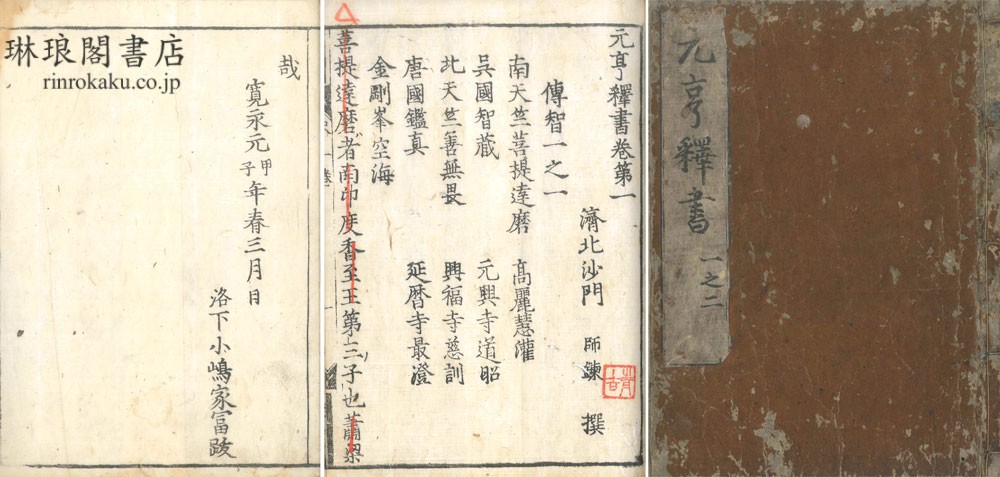 琳琅閣書店
rinrokaku.co.jp
哉
寛永元甲子年春三月日
洛下小嶋家冨跋
元亨釋書卷第一
濟北沙門 師錬 撰
傳智一之一
南天竺菩提達磨 高麗慧灌
吳國智蔵 元興寺道昭
北天竺善無畏 興福寺慈訓
唐國鑑真 延暦寺最澄
金剛峯空海
菩提達磨者南印度香至王第三子也蕭梁
元亨釋書 一之二